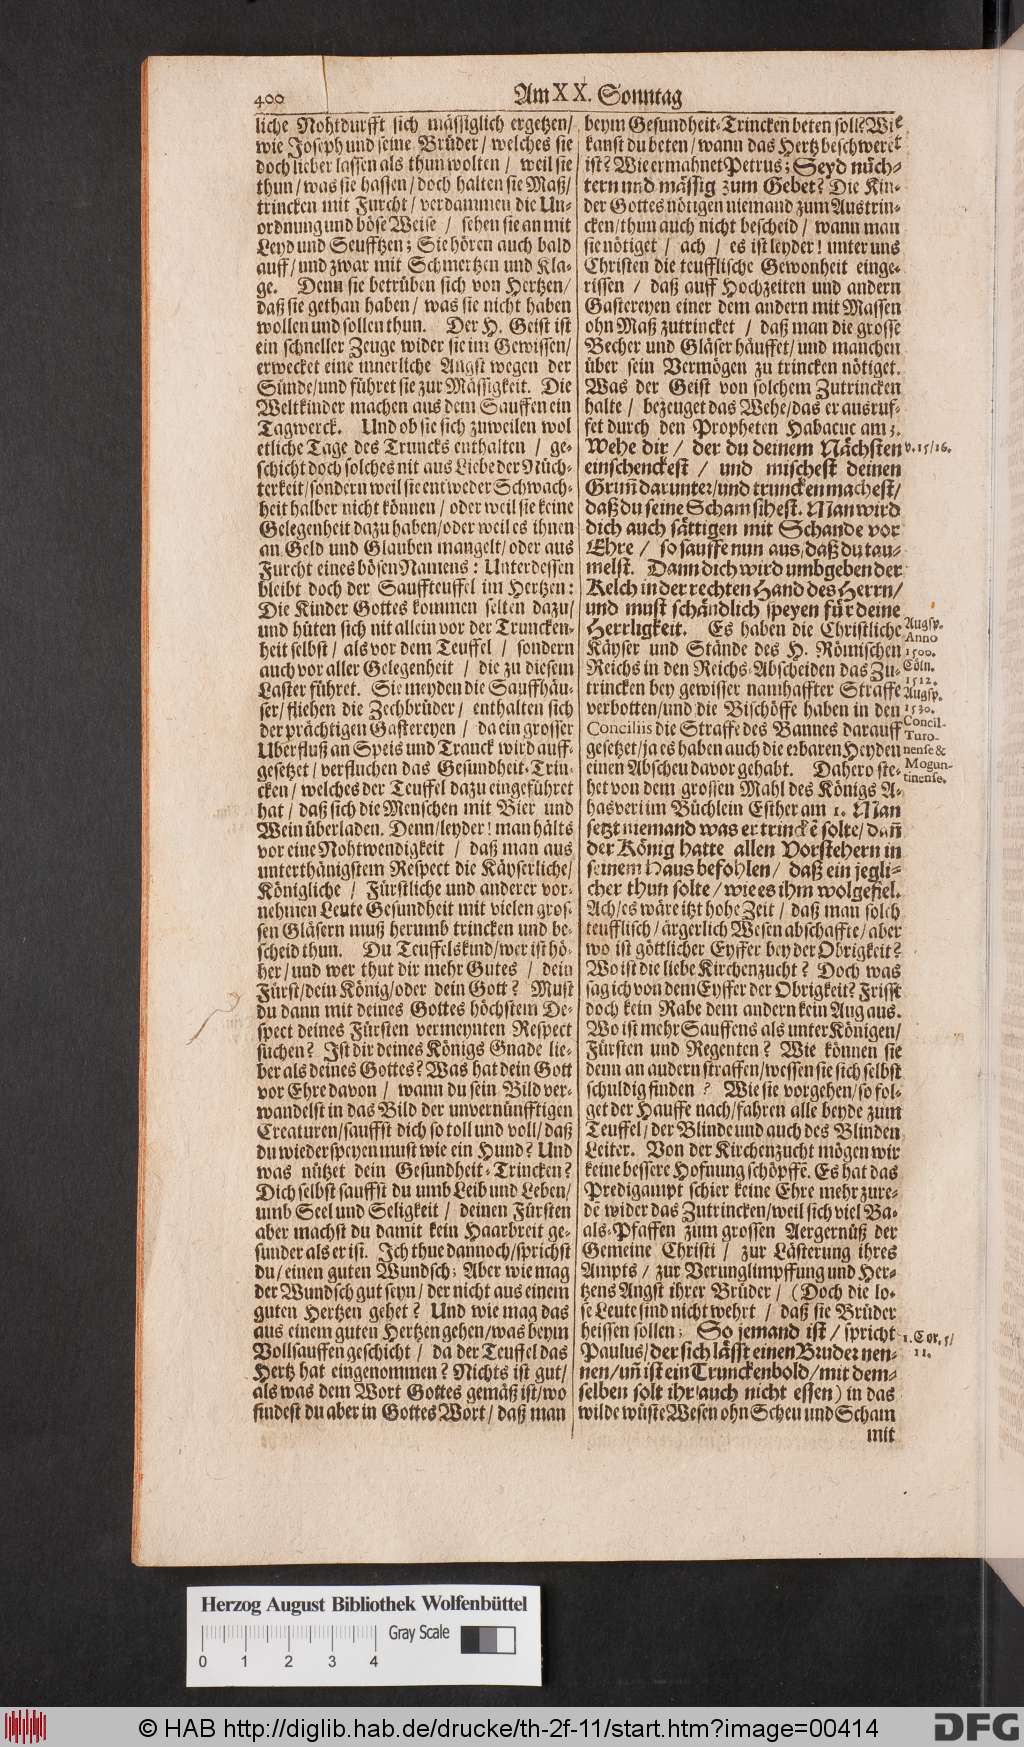 400
Am XX. Sonntag
liche Nohtdurfft sich mässiglich ergetzen/
wie Joseph und seine Brüder/ welches sie
doch lieber lassen als thun wolten / weil sie
thun / was sie hassen / doch halten sie Maß/
trincken mit Furcht/ verdammen die Un-
ordnung und böse Weise / sehen sie an mit
Leyd und Seufftzen; Sie hören auch bald
auff/ und zwar mit Schmertzen und Kla-
ge. Denn sie betrüben sich von Hertzen/
daß sie gethan haben/ was sie nicht haben
wollen und sollen thun. Der H. Geist ist
ein schneller Zeuge wider sie im Gewissen/
erwecket eine innerliche Angst wegen der
Sünde/ und führet sie zur Mässigkeit. Die
Weltkinder machen aus dem Sauffen ein
Tagwerck. Und ob sie sich zuweilen wol
etliche Tage des Truncks enthalten / ge-
schicht doch solches nit aus Liebe der Nüch-
terkeit/ sondern weil sie entweder Schwach-
heit halber nicht können / oder weil sie keine
Gelegenheit dazu haben/ oder weil es ihnen
an Geld und Glauben mangelt/ oder aus
Furcht eines bösen Namens: Unterdessen
bleibt doch der Sauffteuffel im Hertzen:
Die Kinder Gottes kommen selten dazu/
und hüten sich nit allein vor der Truncken-
heit selbst / als vor dem Teuffel / sondern
auch vor aller Gelegenheit / die zu diesem
Laster führet. Sie meyden die Sauffhäu-
ser/ fliehen die Zechbrüder/ enthalten sich
der prächtigen Gastereyen / da ein grosser
Uberfluß an Speis und Tranck wird auff-
gesetzet / verfluchen das Gesundheit-Trin-
cken / welches der Teuffel dazu eingeführet
hat / daß sich die Menschen mit Bier und
Wein überladen. Denn/ leyder! man hälts
vor eine Nohtwendigkeit / daß man aus
unterthänigstem Respect die Käyserliche/
Königliche / Fürstliche und anderer vor-
nehmen Leute Gesundheit mit vielen gros-
sen Gläsern muß herumb trincken und be-
scheid thun. Du Teuffelskind/ wer ist hö-
her/ und wer thut dir mehr Gutes / dein
Fürst/ dein König/ oder dein Gott? Must
du dann mit deines Gottes höchstem De-
spect deines Fürsten vermeynten Respect
suchen? Ist dir deines Königs Gnade lie-
ber als deines Gottes? Was hat dein Gott
vor Ehre davon / wann du sein Bild ver-
wandelst in das Bild der unvernünfftigen
Creaturen/ sauffst dich so toll und voll/ daß
du wiederspeyen must wie ein Hund? Und
was nützet dein Gesundheit-Trincken?
Dich selbst sauffst du umb Leib und Leben/
umb Seel und Seligkeit / deinen Fürsten
aber machst du damit kein Haarbreit ge-
sunder als er ist. Ich thue dannoch/ sprichst
du/ einen guten Wundsch; Aber wie mag
der Wundsch gut seyn/ der nicht aus einem
guten Hertzen gehet? Und wie mag das
aus einem guten Hertzen gehen/ was beym
Vollsauffen geschicht / da der Teuffel das
Hertz hat eingenommen? Nichts ist gut/
als was dem Wort Gottes gemäß ist/ wo
findest du aber in Gottes Wort/ daß man
beym Gesundheit-Trincken beten soll? Wie
kanst du beten/ wann das Hertz beschweret
ist? Wie ermahnet Petrus; Seyd nüch-
tern und mässig zum Gebet? Die Kin-
der Gottes nötigen niemand zum Austrin-
cken/ thun auch nicht bescheid / wann man
sie nötiget / ach / es ist leyder! unter uns
Christen die teufflische Gewonheit einge-
rissen / daß auff Hochzeiten und andern
Gastereyen einer dem andern mit Massen
ohn Maß zutrincket / daß man die grosse
Becher und Gläser häuffet/ und manchen
über sein Vermögen zu trincken nötiget.
Was der Geist von solchem Zutrincken
halte / bezeuget das Wehe/ das er ausruf-
fet durch den Propheten Habacuc am 3.
Wehe dir / der du deinem Nächsten
einschenckest / und mischest deinen
Grim̃ darunter/ und truncken machest/
daß du seine Scham sihest. Man wird
dich auch sättigen mit Schande vor
Ehre / so sauffe nun aus/ daß du tau-
melst. Dann dich wird umbgeben der
Kelch in der rechten Hand des Herrn/
und must schändlich speyen für deine
Herrligkeit. Es haben die Christliche
Käyser und Stände des H. Römischen
Reichs in den Reichs-Abscheiden das Zu-
trincken bey gewisser namhaffter Straffe
verbotten/ und die Bischöffe haben in den
Conciliis die Straffe des Bannes darauff
gesetzet/ ja es haben auch die erbaren Heyden
einen Abscheu davor gehabt. Dahero ste-
het von dem grossen Mahl des Königs A-
hasveri im Büchlein Esther am 1. Man
setzt niemand was er trinckẽ solte/ dañ
der König hatte allen Vorstehern in
seinem Haus befohlen/ daß ein jegli-
cher thun solte / wie es ihm wolgefiel.
Ach/ es wäre itzt hohe Zeit / daß man solch
teufflisch/ ärgerlich Wesen abschaffte/ aber
wo ist göttlicher Eyffer bey der Obrigkeit?
Wo ist die liebe Kirchenzucht? Doch was
sag ich von dem Eyffer der Obrigkeit? Frisst
doch kein Rabe dem andern kein Aug aus.
Wo ist mehr Sauffens als unter Königen/
Fürsten und Regenten? Wie können sie
denn an andern straffen/ wessen sie sich selbst
schuldig finden? Wie sie vorgehen/ so fol-
get der Hauffe nach/ fahren alle beyde zum
Teuffel/ der Blinde und auch des Blinden
Leiter. Von der Kirchenzucht mögen wir
keine bessere Hofnung schöpffẽ. Es hat das
Predigampt schier keine Ehre mehr zu re-
dẽ wider das Zutrincken/ weil sich viel Ba-
als-Pfaffen zum grossen Aergernüß der
Gemeine Christi / zur Lästerung ihres
Ampts / zur Verunglimpffung und Her-
tzens Angst ihrer Brüder/ (Doch die lo-
se Leute sind nicht wehrt / daß sie Brüder
heissen sollen; So jemand ist/ spricht
Paulus/ der sich lässt einen Bruder nen-
nen/ uñ ist ein Trunckenbold/ mit dem-
selben solt ihr auch nicht essen) in das
wilde wüste Wesen ohn Scheu und Scham
mit
v. 15/16.
Augsp.
Anno
1500.
Cöln.
1512.
Augsp.
1530.
Concil-
Turo-
nense &
Mogun-
tinense.
1. Cor. 5/
11.
Herzog August Bibliothek Wolfenbüttel
Gray Scale
0 1 2 3 4
© HAB http://diglib.hab.de/drucke/th-2f-11/start.htm?image=00414
DFG